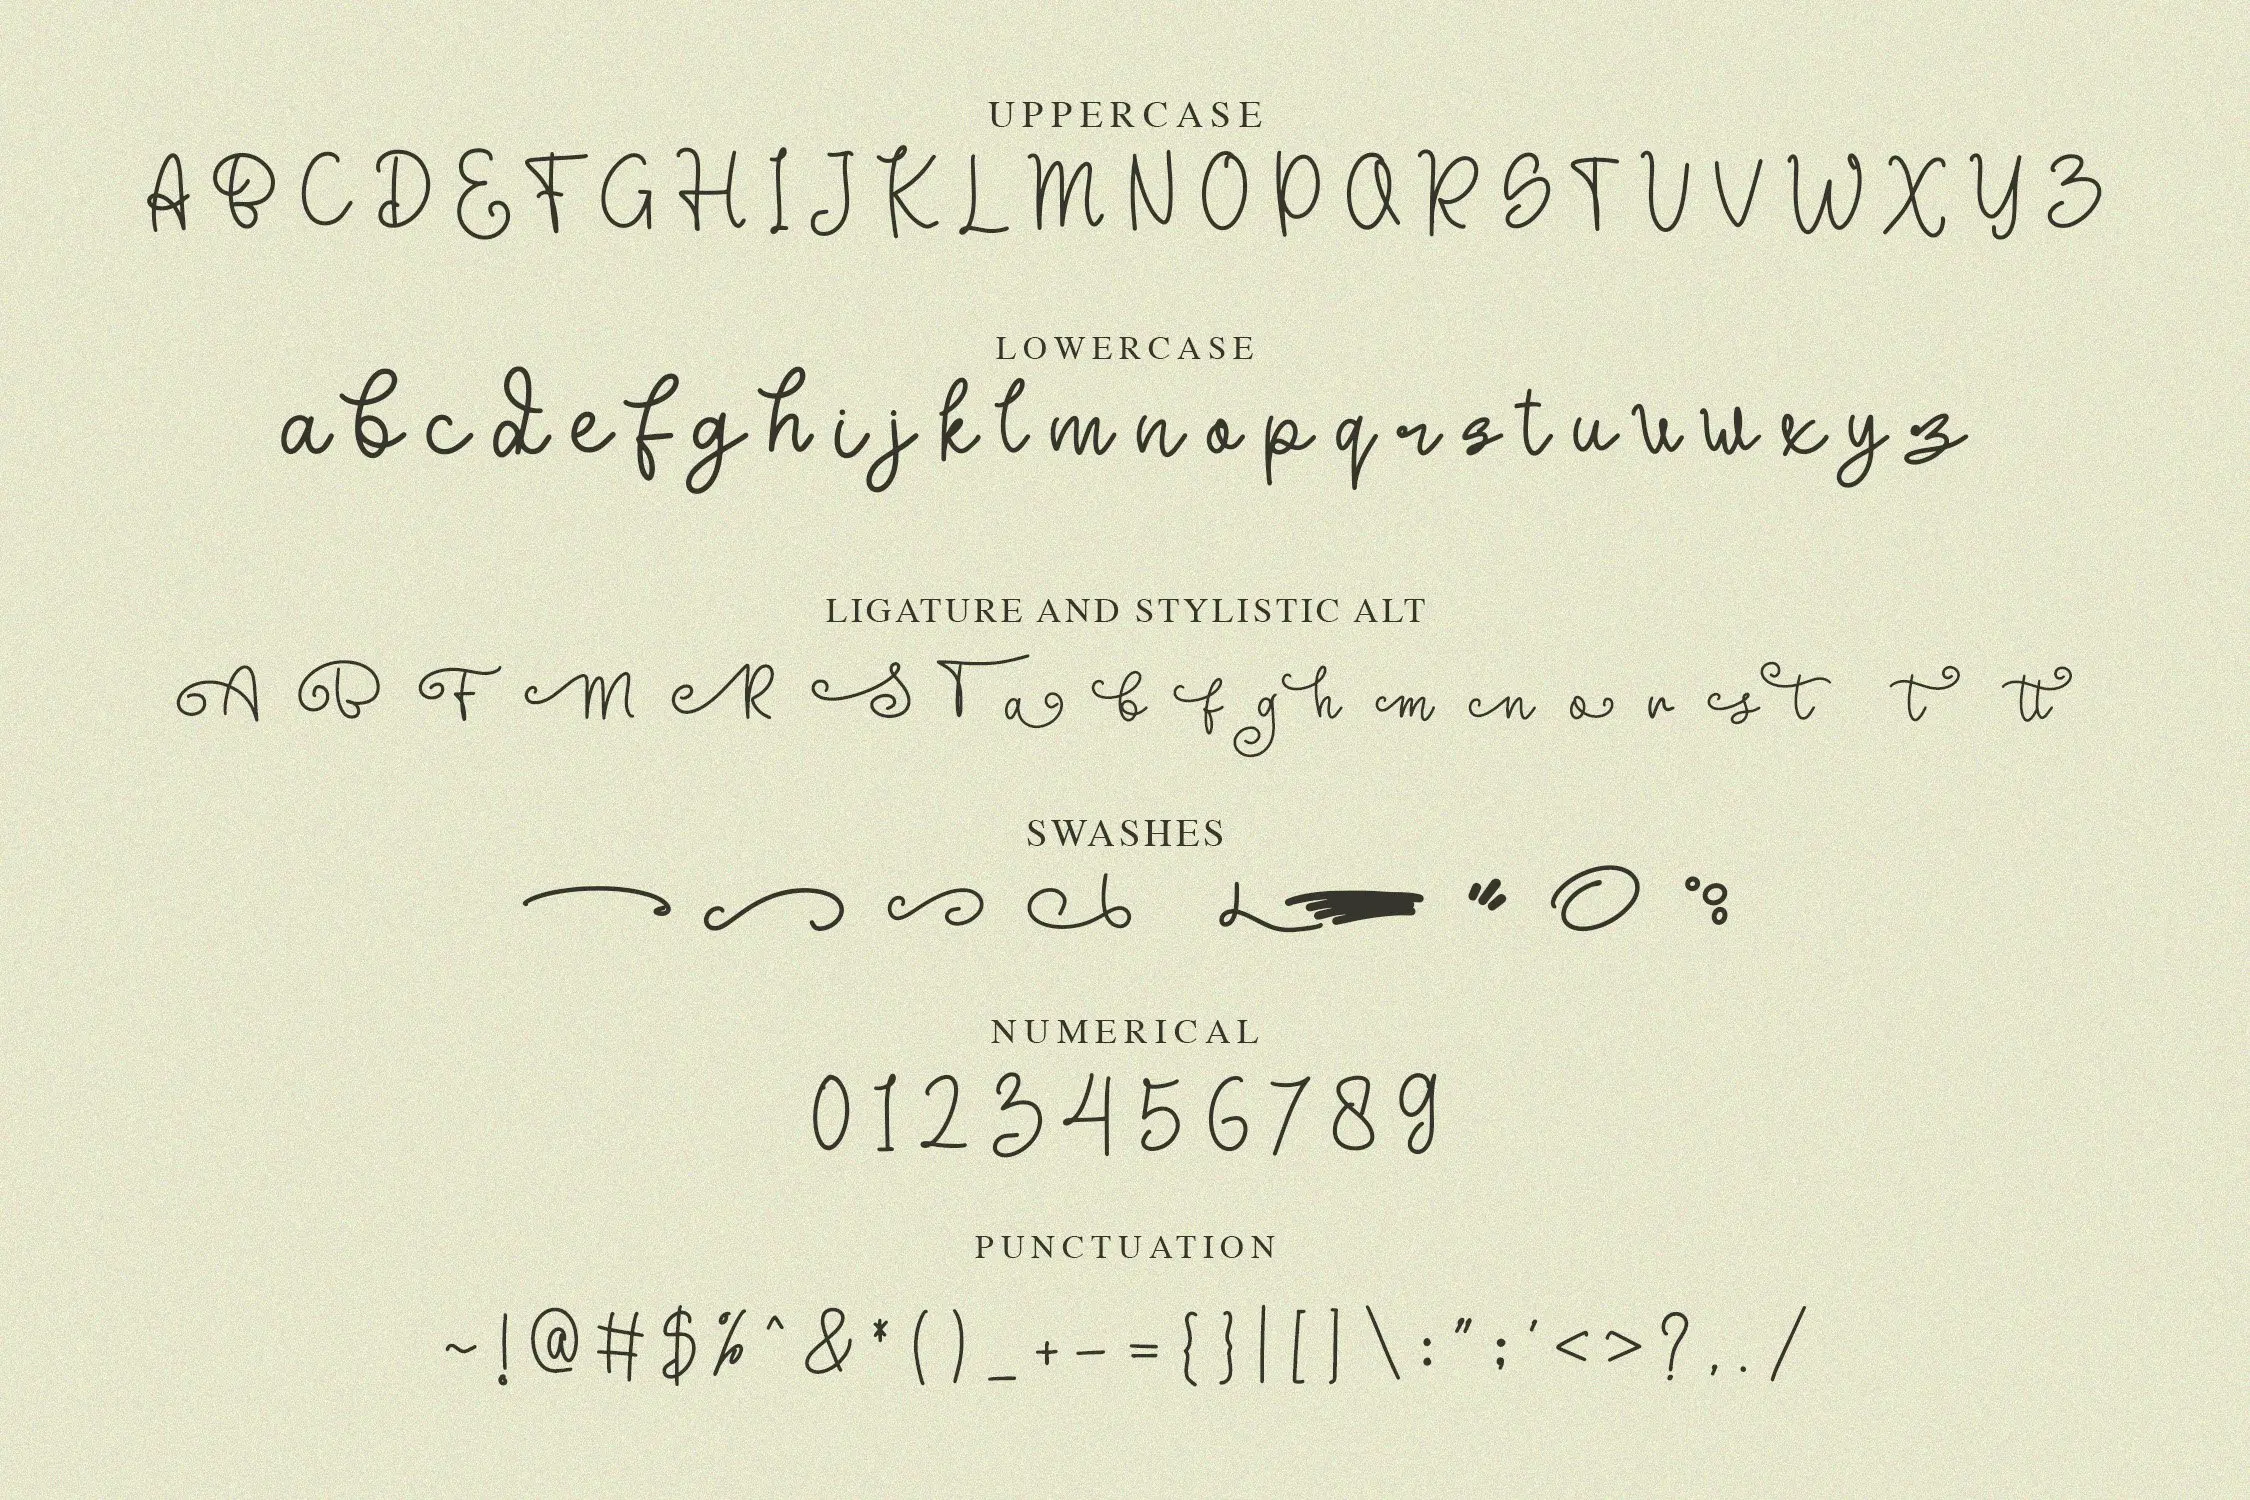 UPPERCASE
A B C D E F G H I J K L M N O P Q R S T U V W X Y Z
LOWERCASE
a b c d e f g h i j k l m n o p q r s t u v w x y z
LIGATURE AND STYLISTIC ALT
A B F M R S T a b f g h m n o r s t t tt
SWASHES
NUMERICAL
0 1 2 3 4 5 6 7 8 9
PUNCTUATION
~ ! @ # $ % ^ & * ( ) _ + - = { } | [ ] \ : " ; ' < > ? , . /